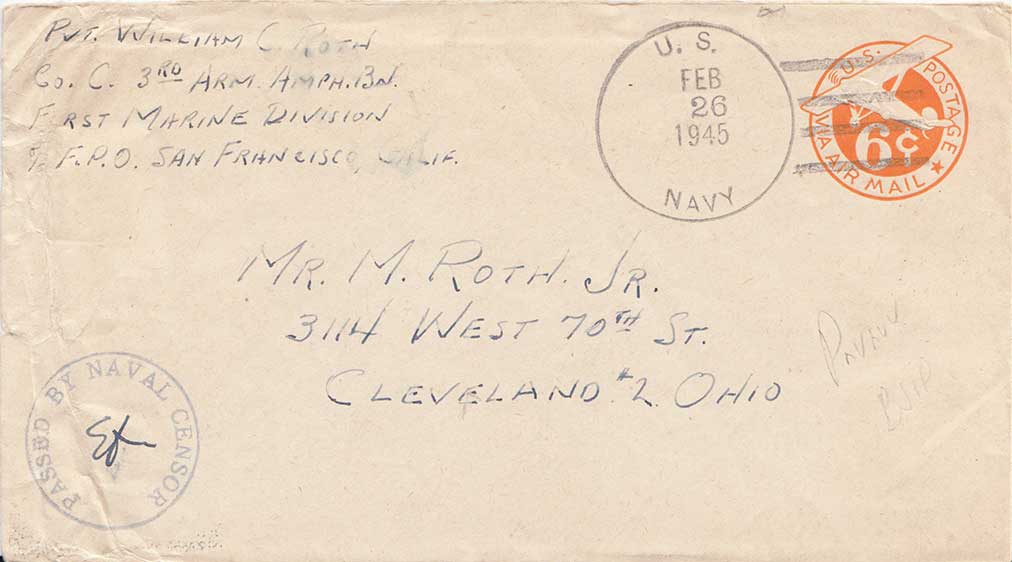 PVT. WILLIAM C. ROTH
CO. C. 3RD ARM. AMPH. BN.
FIRST MARINE DIVISION
℅ F.P.O. SAN FRANCISCO, CALIF.
U. S.
FEB
26
1945
NAVY
U.S. POSTAGE
6¢
VIA AIR MAIL
MR. M. ROTH. JR.
3114 WEST 70TH ST.
CLEVELAND #2 OHIO
PASSED BY NAVAL CENSOR